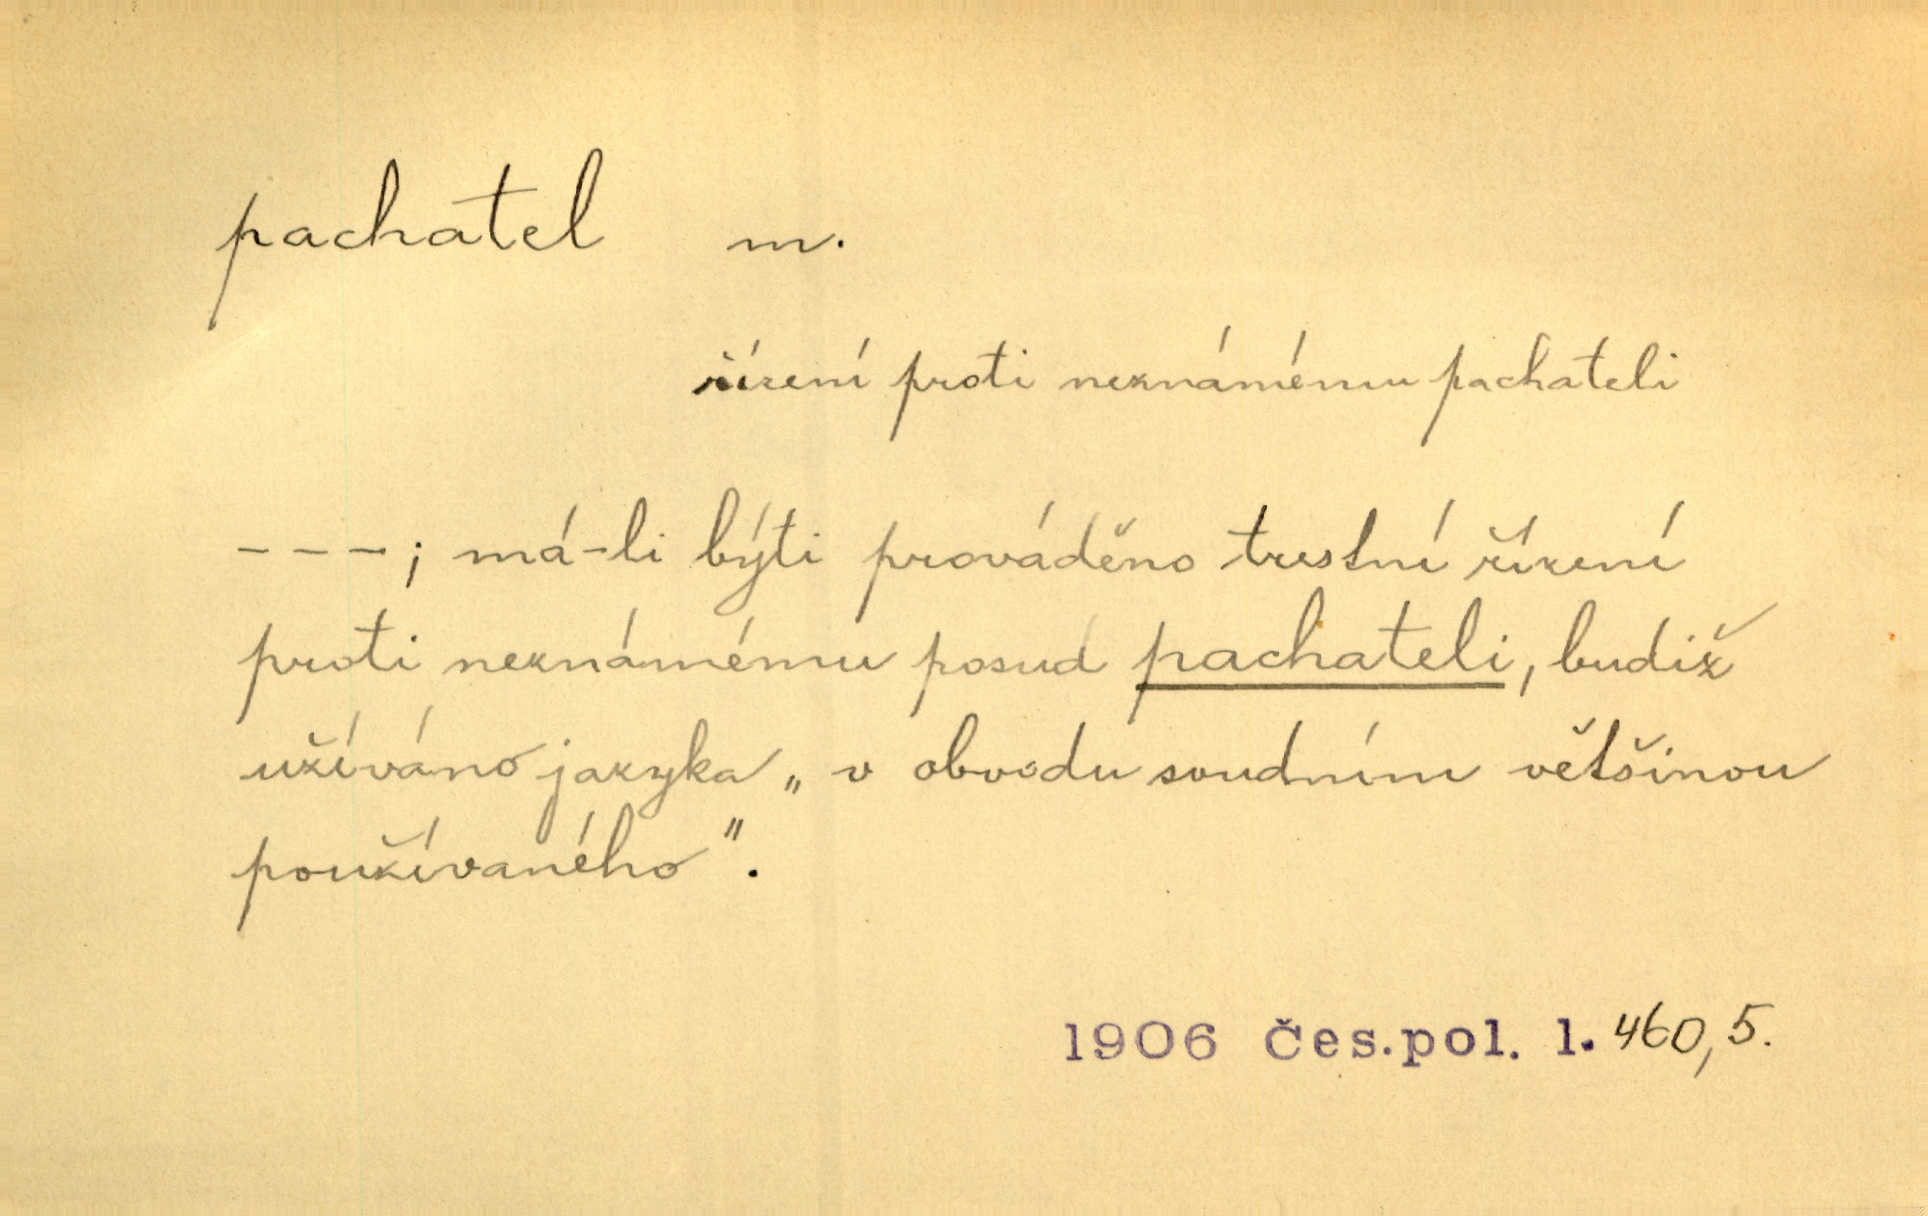 pachatel m.
řízení proti neznámému pachateli
---; má-li býti prováděno trestní řízení
proti neznámému posud pachateli, budiž
užíváno jazyka „v obvodu soudním většinou
používaného".
1906 Čes.pol. 1. 460,5.